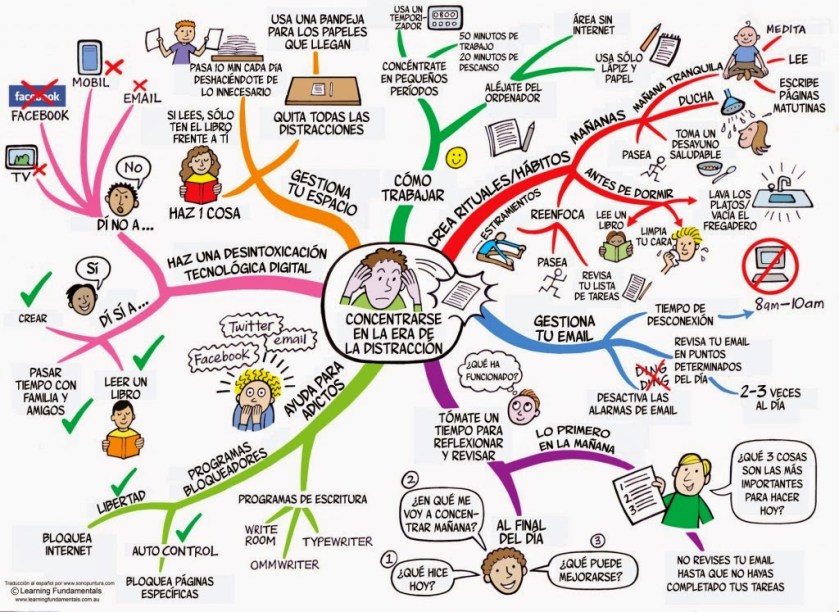 CONCENTRARSE
EN LA ERA DE
LA DISTRACCIÓN
CREA RITUALES/HÁBITOS
MAÑANAS
MAÑANA TRANQUILA
MEDITA
LEE
ESCRIBE
PÁGINAS
MATUTINAS
DUCHA
TOMA UN
DESAYUNO
SALUDABLE
PASEA
ANTES DE DORMIR
LAVA LOS
PLATOS/
VACÍA EL
FREGADERO
LEE UN
LIBRO
LIMPIA
TU CARA
REENFOCA
ESTIRAMIENTOS
PASEA
REVISA
TU LISTA
DE TAREAS
GESTIONA
TU EMAIL
TIEMPO DE
DESCONEXIÓN
8am-10am
REVISA TU EMAIL
EN PUNTOS
DETERMINADOS
DEL DÍA
2-3 VECES
AL DÍA
DING
DING
DESACTIVA LAS
ALARMAS DE EMAIL
¿QUÉ HA
FUNCIONADO?
TÓMATE UN
TIEMPO PARA
REFLEXIONAR
Y REVISAR
LO PRIMERO
EN LA MAÑANA
1
2
3
¿QUÉ 3 COSAS
SON LAS MÁS
IMPORTANTES
PARA HACER
HOY?
NO REVISES TU EMAIL
HASTA QUE NO HAYAS
COMPLETADO TUS TAREAS
AL FINAL
DEL DÍA
1
¿QUÉ HICE
HOY?
2
¿EN QUÉ ME
VOY A CONCEN-
TRAR MAÑANA?
3
¿QUÉ PUEDE
MEJORARSE?
AYUDA PARA
ADICTOS
Twitter
email
Facebook
PROGRAMAS DE ESCRITURA
WRITE
ROOM
OMMWRITER
TYPEWRITER
PROGRAMAS
BLOQUEADORES
LIBERTAD
BLOQUEA
INTERNET
AUTO CONTROL
BLOQUEA PÁGINAS
ESPECÍFICAS
HAZ UNA DESINTOXICACIÓN
TECNOLÓGICA DIGITAL
DÍ SÍ A...
Sí
CREAR
PASAR
TIEMPO CON
FAMILIA Y
AMIGOS
LEER UN
LIBRO
DÍ NO A...
No
TV
facebook
FACEBOOK
MOBIL
EMAIL
GESTIONA
TU ESPACIO
HAZ 1 COSA
SI LEES, SÓLO
TEN EL LIBRO
FRENTE A TÍ
PASA 10 MIN CADA DIA
DESHACIÉNDOTE DE
LO INNECESARIO
USA UNA BANDEJA
PARA LOS PAPELES
QUE LLEGAN
QUITA TODAS LAS
DISTRACCIONES
CÓMO
TRABAJAR
CONCÉNTRATE
EN PEQUEÑOS
PERÍODOS
USA UN
TEMPORI-
ZADOR
50 MINUTOS DE
TRABAJO
20 MINUTOS DE
DESCANSO
ALÉJATE DEL
ORDENADOR
ÁREA SIN
INTERNET
USA SÓLO
LÁPIZ Y
PAPEL
Traducción al español por www.sonopuntura.com
© Learning Fundamentals
www.learningfundamentals.com.au